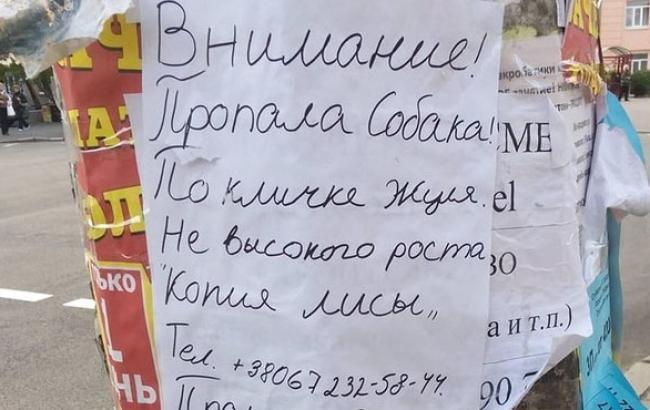 Внимание!
Пропала Собака!
По кличке Жуля.
Не высокого роста
"Копия лисы„
Тел. +38067 232-58-44.
ME
el
а и т.п.)
90 7